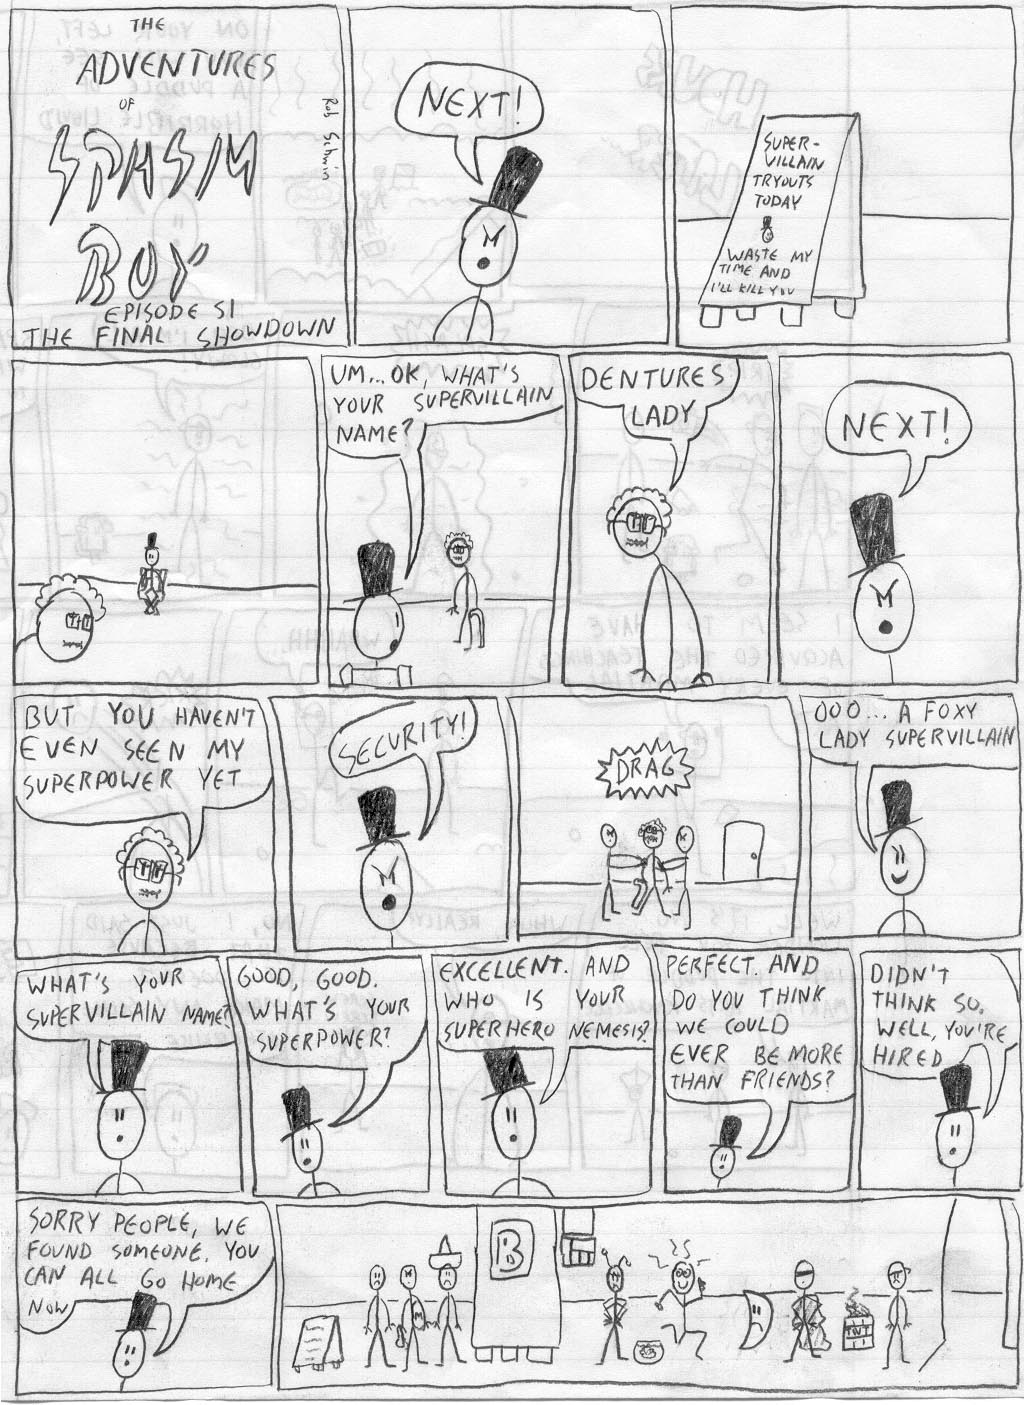 THE
ADVENTURES
OF
SPASM
BOY
Rob Schwim
EPISODE 51
THE FINAL SHOWDOWN
NEXT!
SUPER-
VILLAIN
TRYOUTS
TODAY
WASTE MY
TIME AND
I'LL KILL YOU
UM...OK, WHAT'S
YOUR SUPERVILLAIN
NAME?
DENTURES
LADY
NEXT!
BUT YOU HAVEN'T
EVEN SEEN MY
SUPERPOWER YET
SECURITY!
DRAG
OOO... A FOXY
LADY SUPERVILLAIN
WHAT'S YOUR
SUPERVILLAIN NAME?
GOOD, GOOD.
WHAT'S YOUR
SUPERPOWER?
EXCELLENT. AND
WHO IS YOUR
SUPERHERO NEMESIS?
PERFECT. AND
DO YOU THINK
WE COULD
EVER BE MORE
THAN FRIENDS?
DIDN'T
THINK SO.
WELL, YOU'RE
HIRED
SORRY PEOPLE, WE
FOUND SOMEONE. YOU
CAN ALL GO HOME
NOW
B
M
TNT